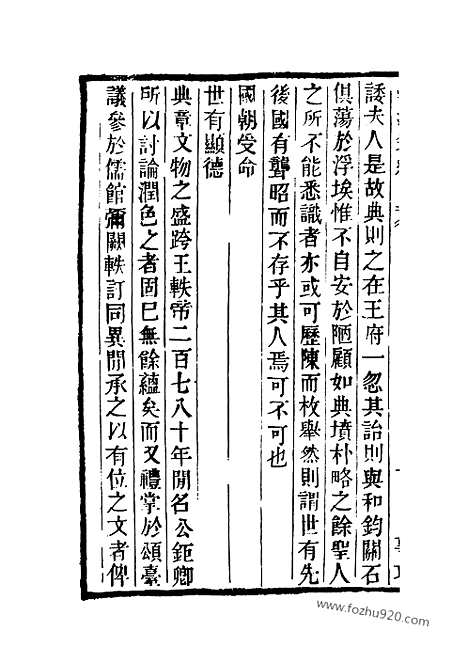 諉夫人是故典則之在王府一忽其詒則與和鈞關石
俱蕩於浮埃惟不自安於陋顧如典墳朴略之餘聖人
之所不能悉識者亦或可歷陳而枚舉然則謂世有先
後國有聾昭而不存乎其人焉可不可也
國朝受命
世有顯德
典章文物之盛跨王軼帝二百七八十年閒名公鉅卿
所以討論潤色之者固已無餘蘊矣而又禮掌於頌臺
議參於儒館彌闕軼訂同異閒承之以有位之文者俾
www.fozhu920.com